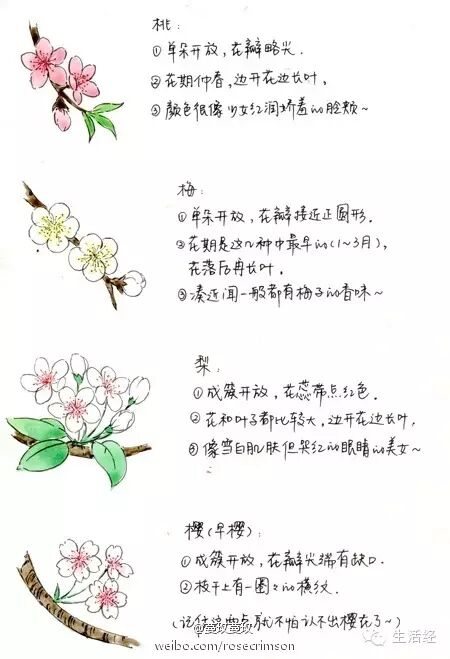 桃:
①单朵开放,花瓣略尖.
②花期仲春,边开花边长叶,
③颜色很像少女红润娇羞的脸颊~
梅:
①单朵开放,花瓣接近正圆形.
②花期是这几种中最早的(1~3月),
花落后再长叶.
③凑近闻一般都有梅子的香味~
梨:
①成簇开放,花蕊带点红色.
②花和叶子都比较大,边开花边长叶,
③像雪白肌肤但哭红的眼睛的美女~
樱(早樱):
①成簇开放,花瓣尖端有缺口.
②枝干上有一圈々的横纹.
(记住这两点就不怕认不出樱花了~)
weibo.com/rosecrimson
生活经